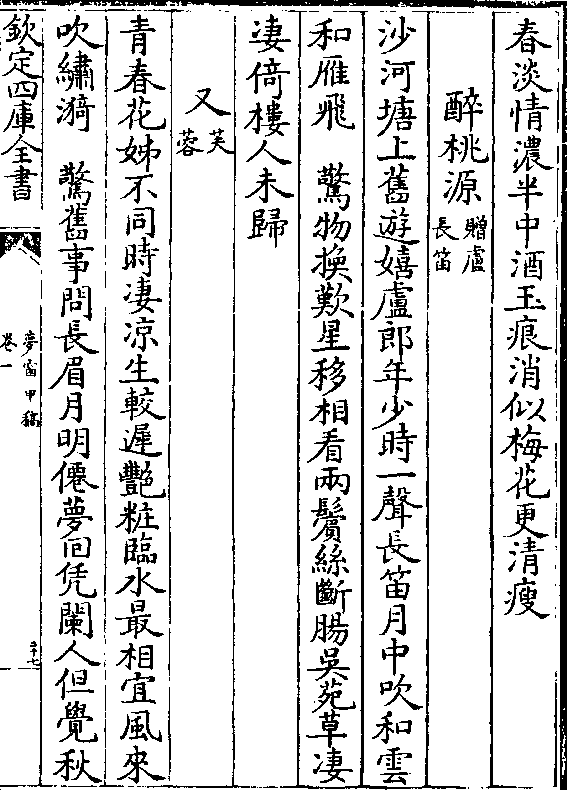 春淡情濃半中酒玉痕消似梅花更清瘦
醉桃源贈盧長笛
沙河塘上舊遊嬉盧郎年少時一聲長笛月中吹和雲
和雁飛　驚物換歎星移相看兩鬢絲斷腸吳苑草凄
凄倚樓人未歸
又芙蓉
青春花姊不同時凄凉生較遲艷粧臨水最相宜風來
吹繡漪　驚舊事問長眉月明僊夢回凭闌人但覺秋
欽定四庫全書
夢窗甲稿
卷一
二十七